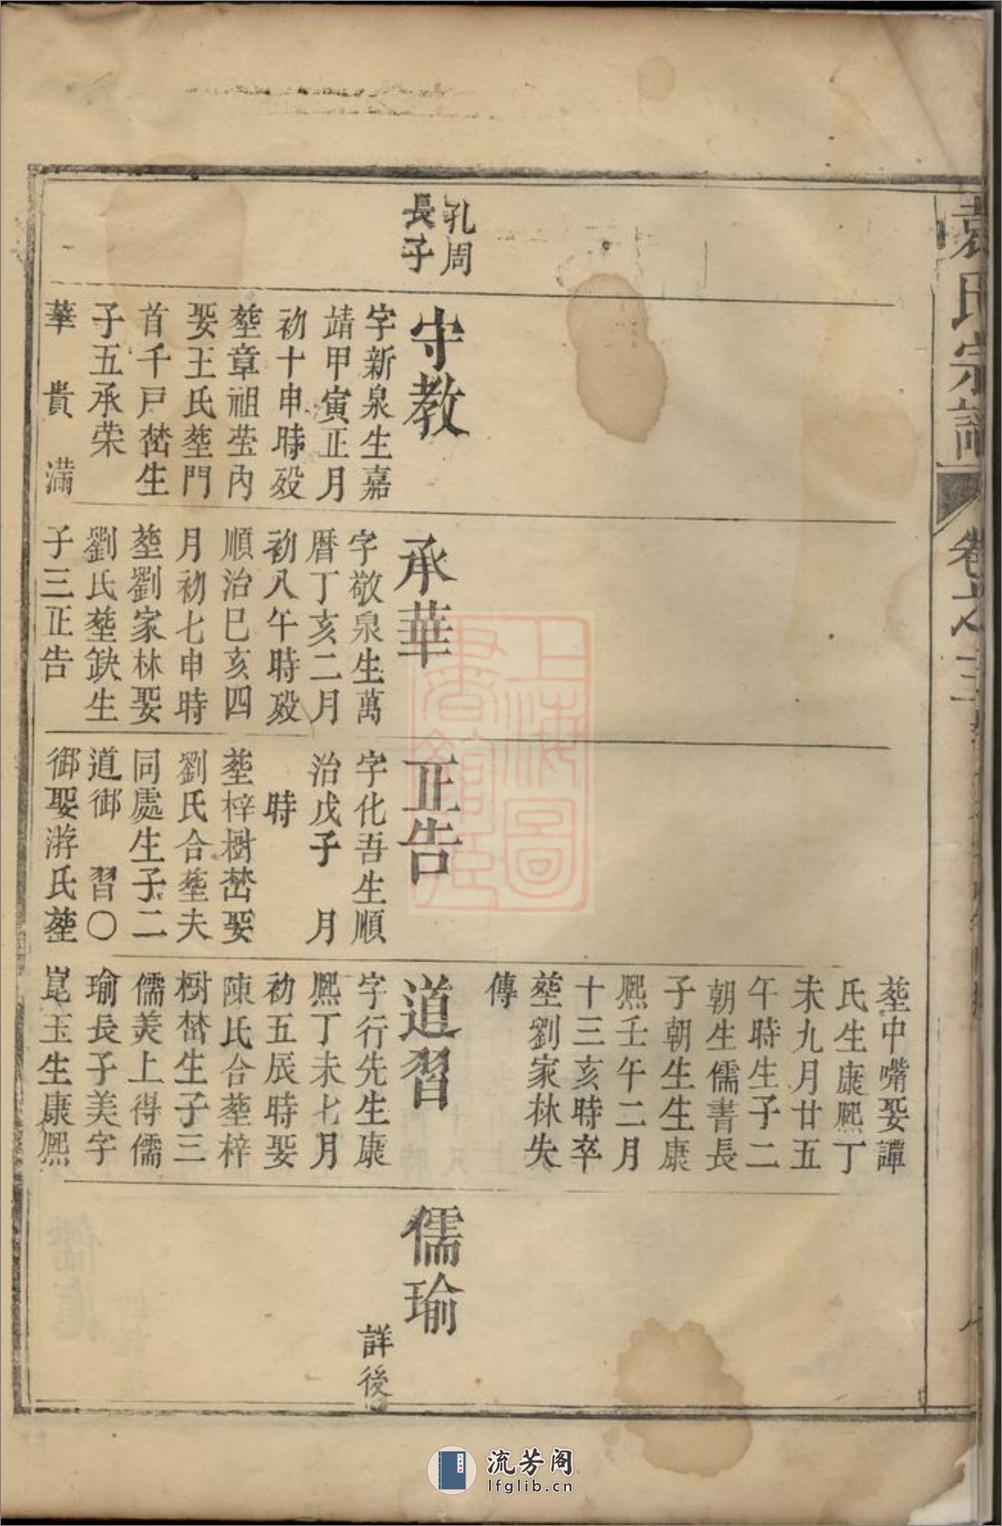 袁氏宗譜
卷之三
孔周
長子
守教
字新泉生嘉
靖甲寅正月
初十申時殁
塟章祖茔内
娶王氏塟門
首千戸嵆生
子五承荣
華貴滿
承華
字敬泉生萬
曆丁亥二月
初八午時殁
順治巳亥四
月初七申時
塟劉家林娶
劉氏塟缺生
子三正告
正告
字化吾生順
治戊子 月
時
塟梓樹嵆娶
劉氏合塟夫
同處生子二
道御 習〇
御娶游氏塟
塟中嘴娶譚
氏生康熈丁
未九月廿五
午時生子二
朝生儒書長
子朝生生康
熈壬午二月
十三亥時卒
塟劉家林失
傳
道習
字行先生康
熈丁未七月
初五辰時娶
陳氏合塟梓
樹嵆生子三
儒美上得儒
瑜長子美字
崑玉生康熈
儒瑜
詳後
上海圖
書館藏
流芳阁
lfglib.cn